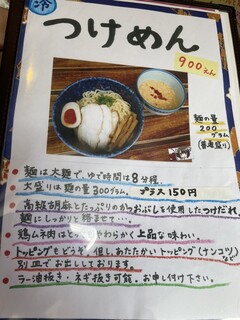 冷
つけめん
900えん
麺の量
200
グラム
(普通盛り)
麺は太麺で、ゆで時間は8分程。
大盛りは麺の量300グラム。プラス150円
高級胡麻とたっぷりのかつおぶしを使用したつけだれ。
麺にしっかりと絡ませて…
鶏ムネ肉はとってもやわらかく上品な味わい
トッピングもどうぞ。但し、あたたかいトッピング(ナンコツ)など
別皿でお出ししております。
ラー油抜き・ネギ抜き可能。お申し付け下さい。